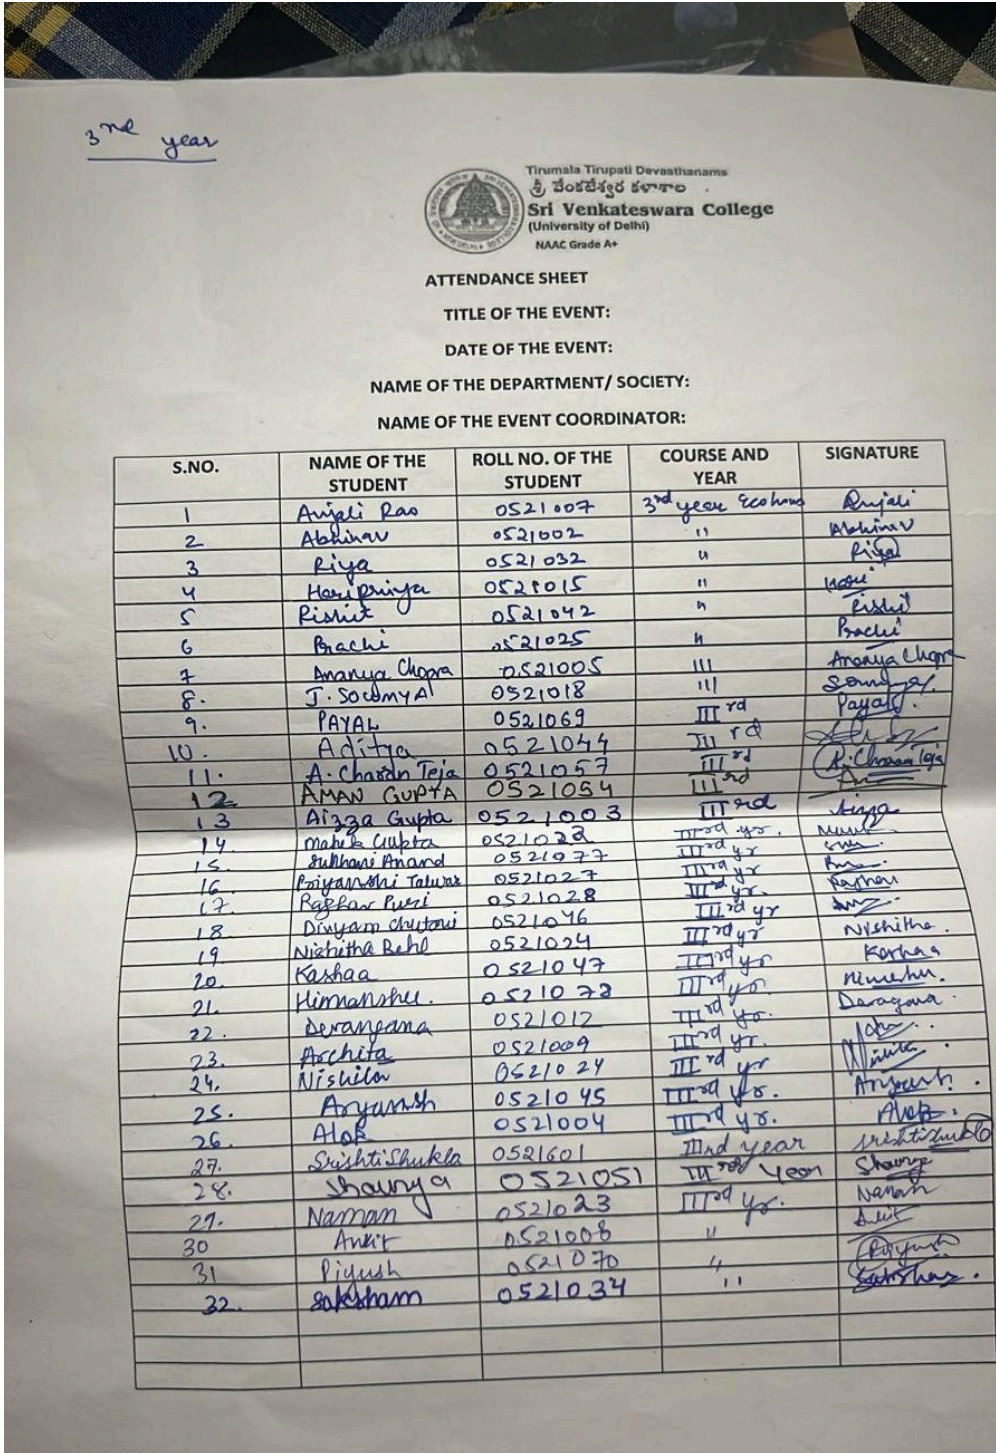 3nd year
Tirumala Tirupati Devasthanams
శ్రీ వేంకటేశ్వర కళాశాల
Sri Venkateswara College
(University of Delhi)
NAAC Grade A+
ATTENDANCE SHEET
TITLE OF THE EVENT:
DATE OF THE EVENT:
NAME OF THE DEPARTMENT/ SOCIETY:
NAME OF THE EVENT COORDINATOR:
S.NO. NAME OF THE STUDENT ROLL NO. OF THE STUDENT COURSE AND YEAR SIGNATURE
1 Anjali Rao 0521007 3rd year Eco hons Anjali
2 Abhinav 0521002 " Abhinav
3 Riya 0521032 " Riya
4 Haripriya 0521015 " Hari
5 Rishit 0521042 " Rishit
6 Prachi 0521025 " Prachi
7 Ananya Chopra 0521005 III Ananya Chopra
8. J. Soumya 0521018 III Soumya
9. PAYAL 0521069 III rd Payal
10. Aditya 0521044 III rd
11. A. Charan Teja 0521057 III rd A. Charan Teja
12 AMAN GUPTA 0521054 III rd
13 Aizza Gupta 0521003 III rd Aizza
14. Mahek Gupta 0521022 III rd yr.
15. Subhani Anand 0521077 III rd yr
16. Priyanshi Talwar 0521027 III rd yr
17. Raghav Puri 0521028 III rd yr. Raghav
18 Divyam 0521046 III rd yr
19. Nishitha Behl 0521024 III rd yr Nishitha.
20. Kashaa 0521047 III rd yr Kashaa
21. Himanshu. 0521078 III rd yr. Himanshu.
22. Devangana 0521012 III rd yr. Devangana.
23. Archita 0521009 III rd yr.
24. Nishita 0521024 III rd yr
25. Aryansh 0521045 III rd yr. Aryansh.
26. Alok 0521004 III rd yr. Alok.
27. Srishti Shukla 0521601 IIInd year Srishti Shukla
28. Shaurya 0521051 III rd Year Shaurya
29. Naman 0521023 III rd yr. Naman
30 Ankit 0521008 " Ankit
31 Piyush 0521070 " Piyush
32. Saksham 0521034 " Saksham.